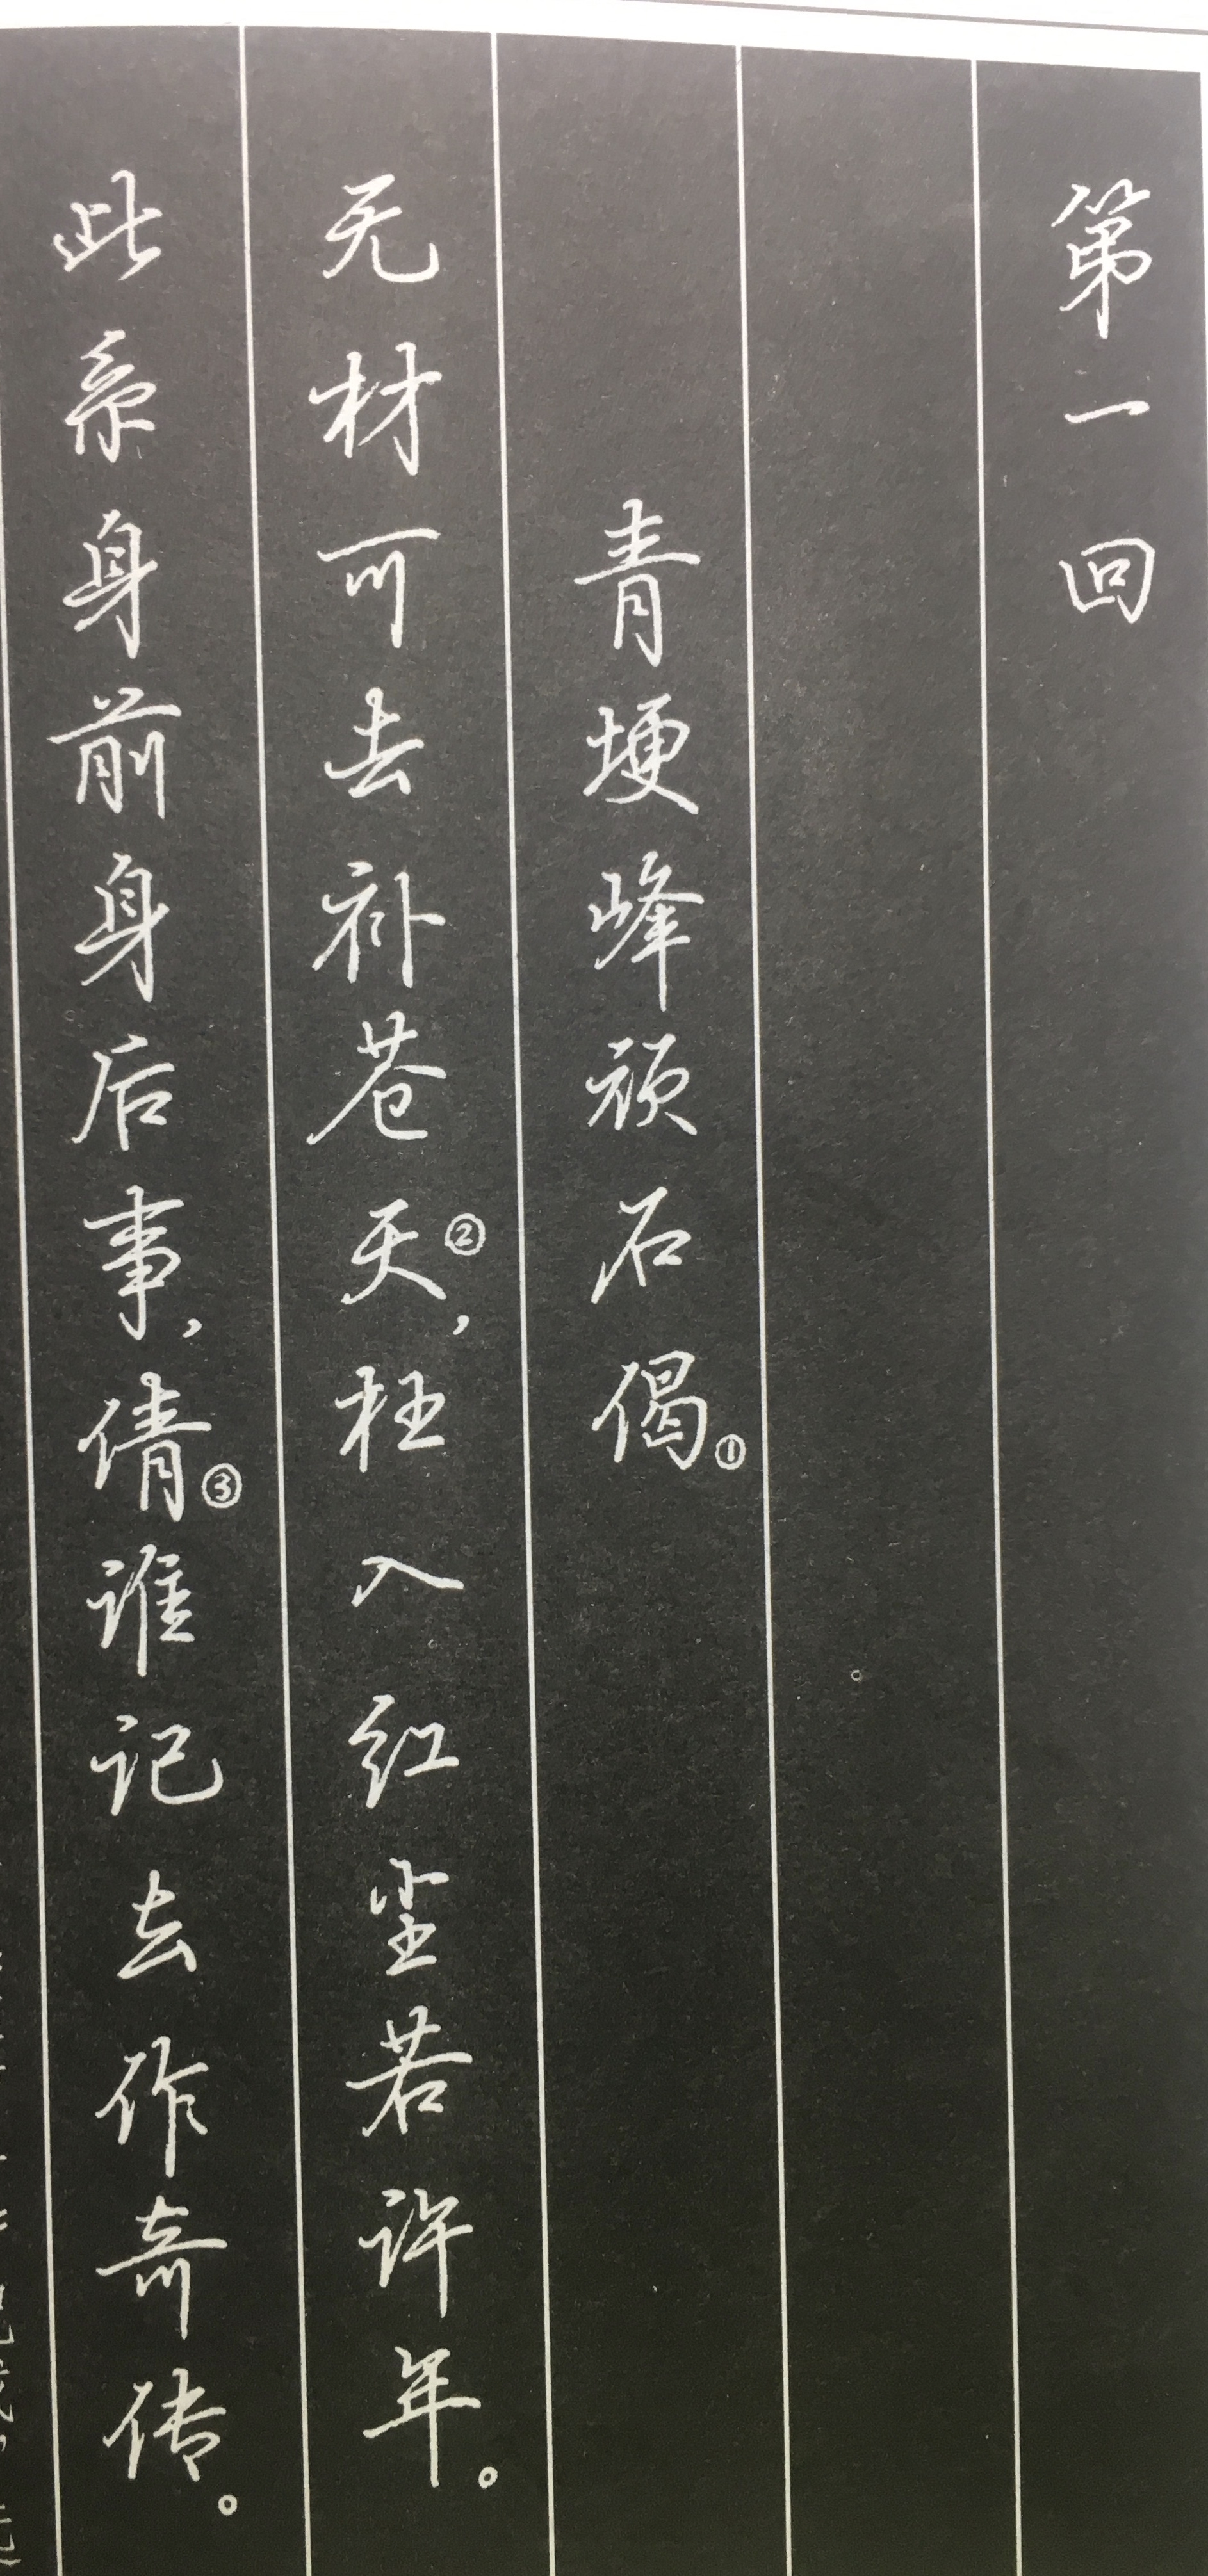 第一回
青埂峰顽石偈①
无材可去补苍天②，枉入红尘若许年。
此系身前身后事，倩③谁记去作奇传。